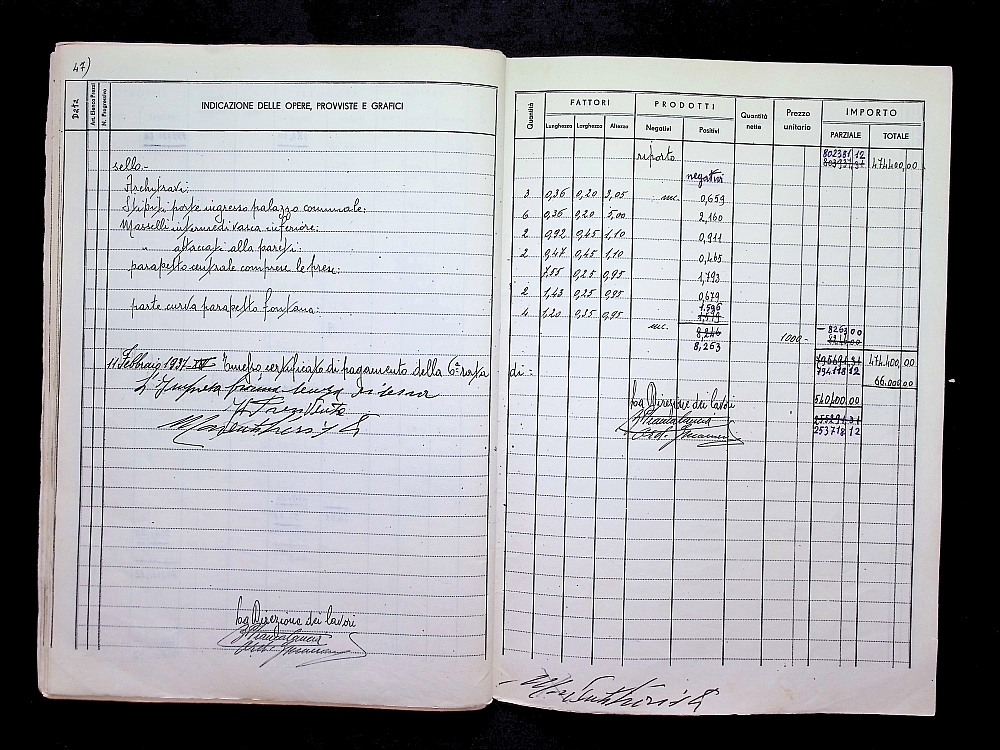 47)
Data
Art. Elenco Prezzi
N. Progressivo
INDICAZIONE DELLE OPERE, PROVVISTE E GRAFICI
sello.-
Architravi:
Stipiti porte ingresso palazzo comunale:
Masselli intermedi vasca inferiore:
" attaccati alla parete:
parapetto centrale comprese le prese:
parte curva parapetto fontana:
11 Febbraio 1937-XV Emesso certificato di pagamento della 6ª rata di:
L'Impresa
Il Presidente
La Direzione dei lavori
Quantità
FATTORI
Lunghezza Larghezza Altezza
PRODOTTI
Negativi Positivi
Quantità nette
Prezzo unitario
IMPORTO
PARZIALE TOTALE
riporto 802381 12 474400,00
negativi
3 0,36 0,20 3,05 mc. 0,659
6 0,36 0,20 5,00 2,160
2 0,92 0,45 1,10 0,911
2 0,47 0,45 1,10 0,465
7,55 0,25 0,95 1,793
2 1,43 0,25 0,95 0,679
4 1,20 0,35 0,95 1,596
mc. 8,246 1000- -8263 00
8,263
795691 31 474400,00
794118 12
66.000 00
540400.00
La Direzione dei lavori
253718 12